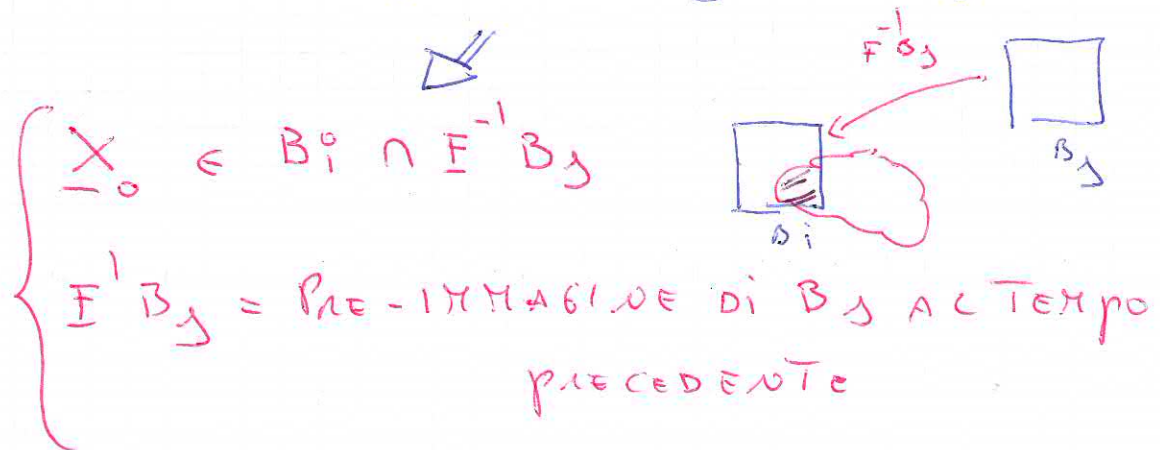 F⁻¹B_j
X_0 ∈ B_i ∩ F⁻¹B_j
B_j
B_i
F⁻¹B_j = PRE-IMMAGINE DI B_j AL TEMPO
PRECEDENTE